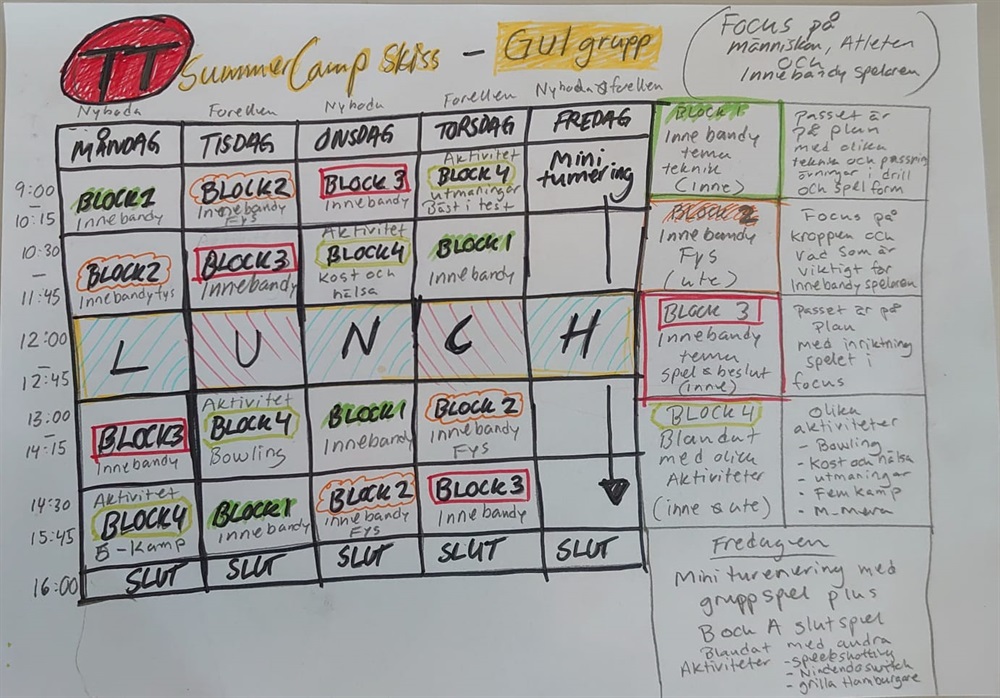 TT
SummerCamp Skiss - Gul grupp
(Focus på
människan, Atleten
och
Innebandy spelaren)
Nyhoda Forellen Nyhoda Forellen Nyhoda & forellen
MÅNDAG TISDAG ONSDAG TORSDAG FREDAG
9:00
-
10:15
BLOCK1
Innebandy
BLOCK2
Innebandy
Fys
BLOCK 3
Innebandy
Aktivitet
BLOCK4
utmaningar
Bäst i test
Mini
turnering
10:30
-
11:45
BLOCK2
Innebandyfys
BLOCK3
Innebandy
Aktivitet
BLOCK4
Kost och
hälsa
BLOCK1
Innebandy
12:00
-
12:45
L U N C H
13:00
-
14:15
BLOCK3
Innebandy
Aktivitet
BLOCK4
Bowling
BLOCK1
Innebandy
BLOCK 2
Innebandy
Fys
14:30
-
15:45
Aktivitet
BLOCK4
5-Kamp
BLOCK1
Innebandy
BLOCK2
Innebandy
Fys
BLOCK3
Innebandy
16:00
SLUT SLUT SLUT SLUT SLUT
BLOCK 1
Innebandy
tema
teknik
(inne)
Passet är
på plan
med olika
teknik och passning
övningar i drill
och spel form
BLOCK 2
Innebandy
Fys
(ute)
Focus på
kroppen och
vad som är
viktigt för
innebandy spelaren
BLOCK 3
Innebandy
tema
spel & beslut
(inne)
Passet är på
plan
med inriktning
spelet i
focus
BLOCK4
Blandat
med olika
Aktiviteter
(inne & ute)
Olika
aktiviteter
- Bowling
- Kost och hälsa
- utmaningar
- Femkamp
- M-mera
Fredagen
Mini turenering med
gruppspel plus
B och A slutspel
Blandat med andra
Aktiviteter -speedshotting
- Nindendo switch
- grilla Hamburgare